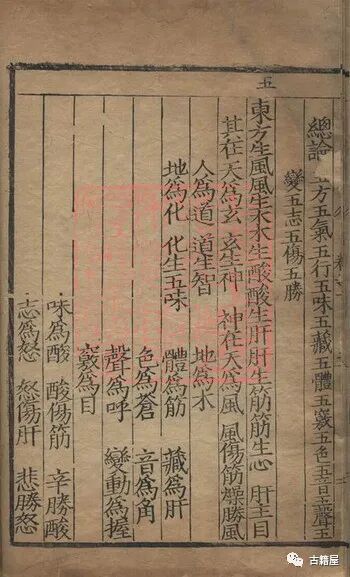 五
總論 五方五氣五行五味五藏五體五竅五色五音五聲五
變五志五傷五勝
東方生風風生木木生酸酸生肝肝生筋筋生心 肝主目
其在天爲玄 玄生神 神在天爲風 風傷筋燥勝風
人爲道 道生智 地爲木
地爲化 化生五味 體爲筋 藏爲肝
色爲蒼 音爲角
聲爲呼 變動爲握
竅爲目
味爲酸 酸傷筋 辛勝酸
志爲怒 怒傷肝 悲勝怒
古籍屋